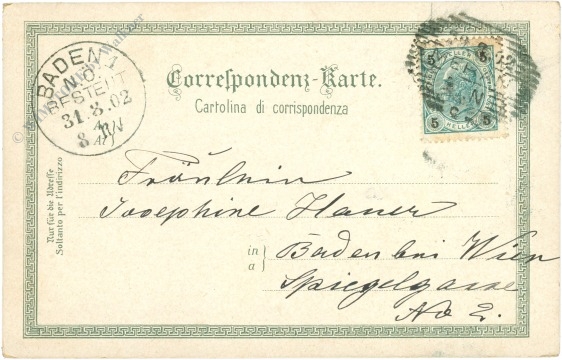 BADEN 1
N.Ö.
BESTELLT
31.8.02
8
Correspondenz-Karte.
Cartolina di corrispondenza
5 5
5 HELLER 5
Nur für die Adresse
Soltanto per l'indirizzo
Fräulein
Josephine Hauer
in
a
Baden bei Wien
Spiegelgasse
No 2.